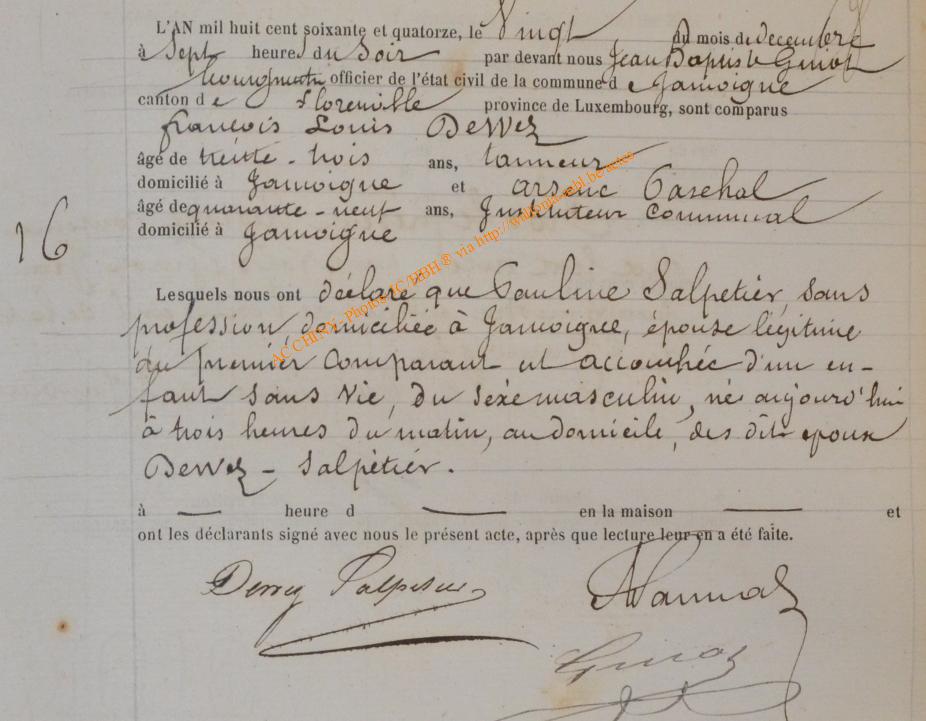 L'AN mil huit cent soixante et quatorze, le Vingt du mois de décembre
à Sept heures du Soir par devant nous Jean Baptiste Ginot
Bourgmestre officier de l'état civil de la commune de Jamoigne
canton de Florenville province de Luxembourg, sont comparus
françois Louis Dewez
âgé de trente-trois ans, tanneur
domicilié à Jamoigne et arsène Paschal
âgé de quarante-neuf ans, Instituteur Communal
domicilié à Jamoigne
16
Lesquels nous ont déclaré que Pauline Salpetier, sans
profession domiciliée à Jamoigne, épouse légitime
du premier Comparant est accouchée d'un en-
fant sans Vie, du sexe masculin, né aujourd'hui
à trois heures du matin, au domicile, des dits époux
Dewez - Salpètier.
à — heure d — en la maison — et
ont les déclarants signé avec nous le présent acte, après que lecture leur en a été faite.
Dewez Salpetier
Ginot